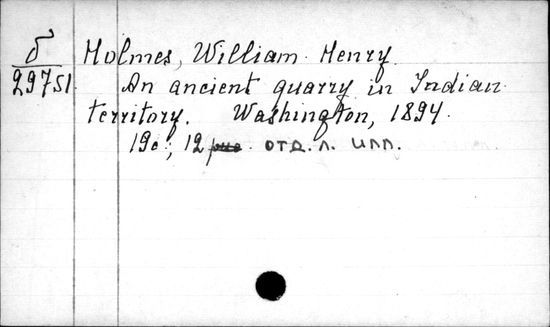 б Holmes, William Henry.
29751 An ancient quarry in Indian
territory. Washington, 1894.
19с; 12 отд. л. илл.